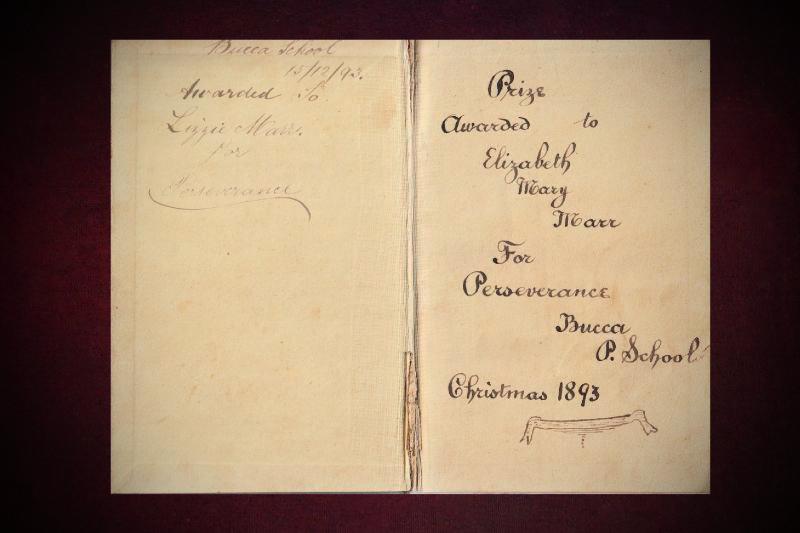 Bucca School
15/12/93.
Awarded To
Lizzie Marr.
for
Perseverance
Prize
Awarded to
Elizabeth
Mary
Marr
For
Perseverance
Bucca
P. School
Christmas 1893